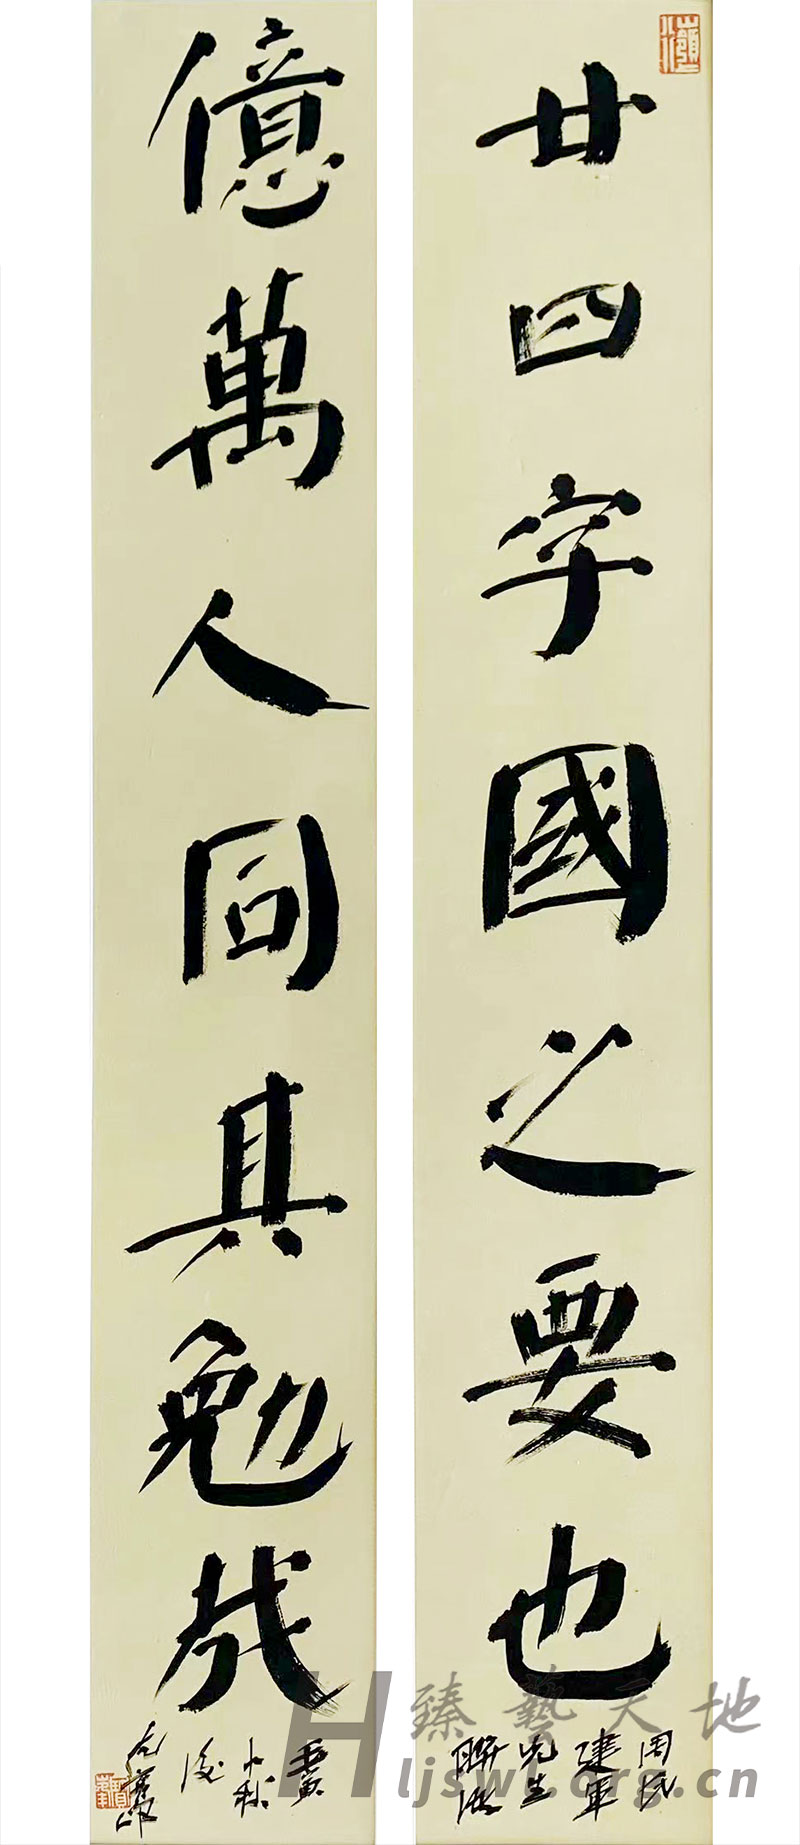 廿四字國之要也
周氏
建軍
先生
億萬人同其勉哉
壬寅
臻藝天地
Hljswt.org.cn